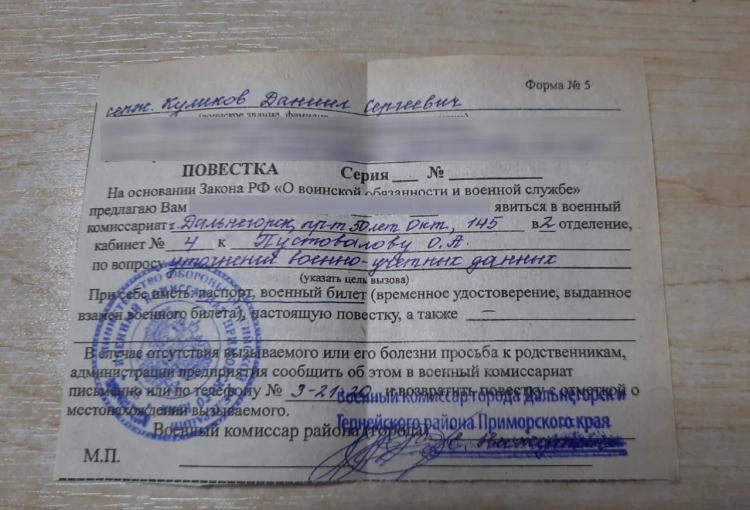 Форма № 5
серж. Куликов Даниил Сергеевич
ПОВЕСТКА Серия № 
На основании Закона РФ «О воинской обязанности и военной службе»
предлагаю Вам явиться в военный
комиссариат г. Дальнегорск, пр-т 50 лет Окт, 145 в 2 отделение,
кабинет № 4 к Пустовалову О.А.
по вопросу уточнения военно-учетных данных
(указать цель вызова)
При себе иметь: паспорт, военный билет (временное удостоверение, выданное
взамен военного билета), настоящую повестку, а также –
В случае отсутствия вызываемого или его болезни просьба к родственникам,
администрации предприятия сообщить об этом в военный комиссариат
письменно или по телефону № 3-21-20 и возвратить повестку с отметкой о
местонахождении вызываемого.
Военный комиссар города Дальнегорск и
Тернейского района Приморского края
Военный комиссар района (города)
М.П.